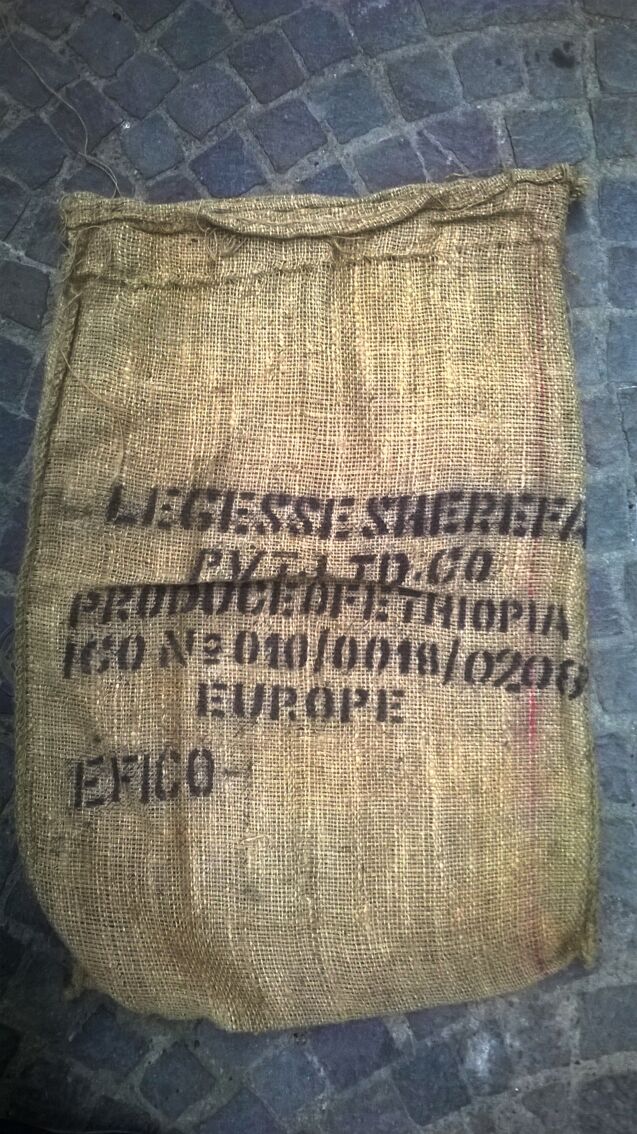 LEGESSE SHEREFA
PVT.LTD.CO
PRODUCEOFETHIOPIA
ICO No 010/0018/0208
EUROPE
EFICO-